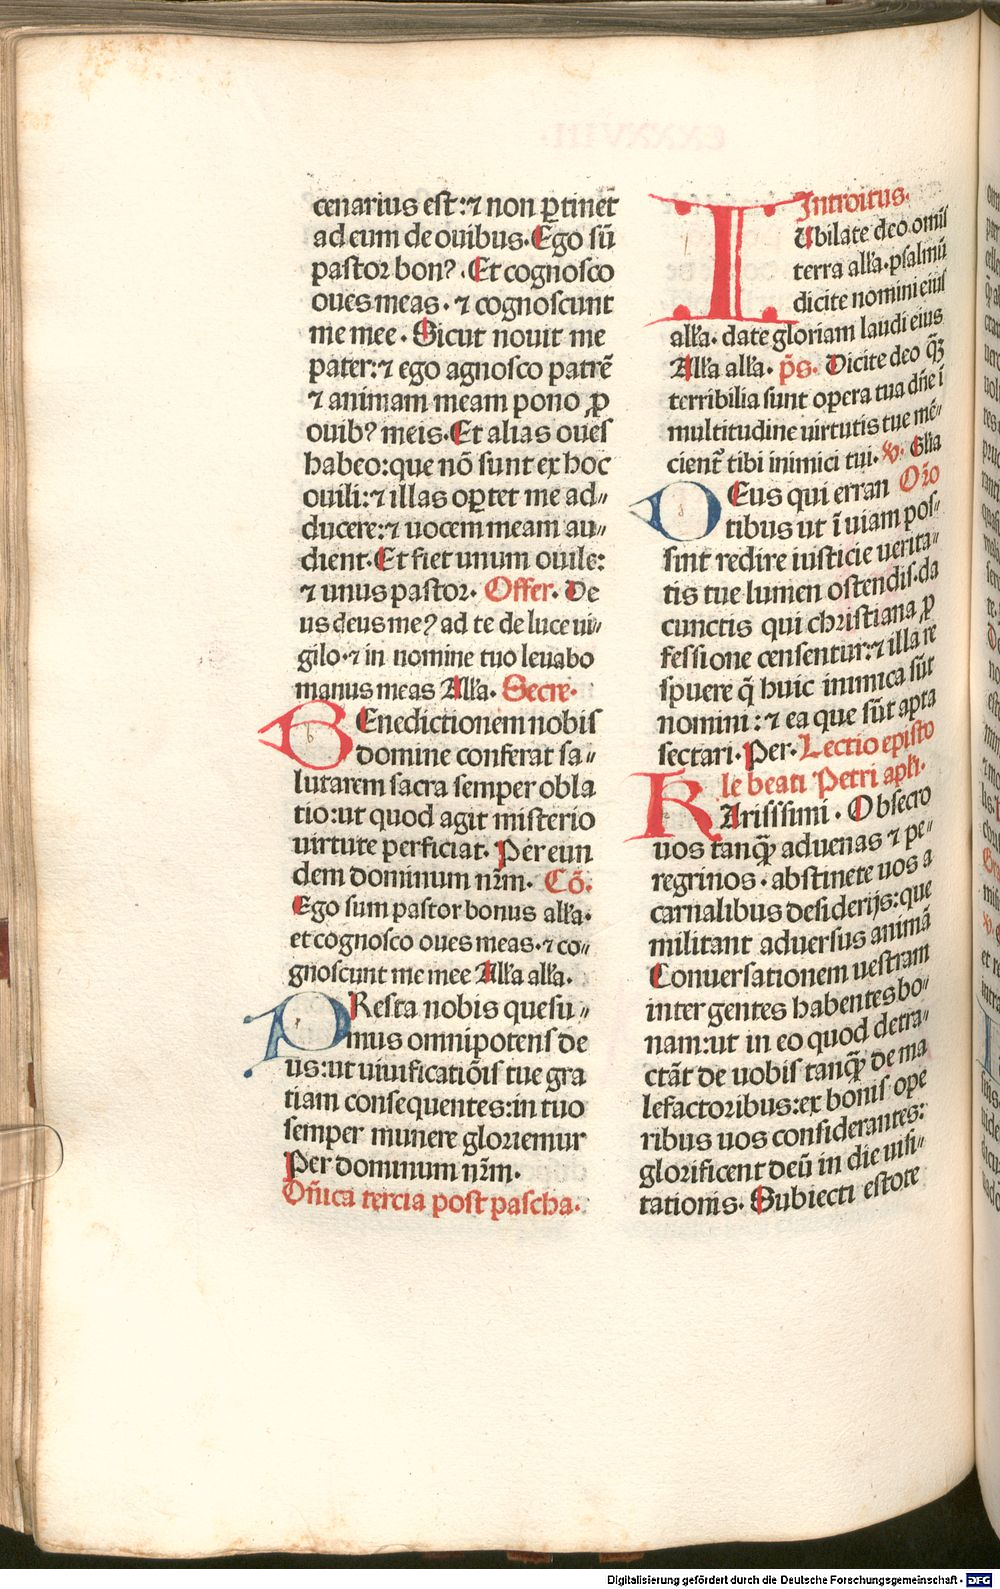 cenarius est:⁊ non ꝑtinet
ad eum de ouibus. Ego sū
pastor bonꝰ. Et cognosco
oues meas. ⁊ cognoscunt
me mee. Sicut nouit me
pater:⁊ ego agnosco patrē
⁊ animam meam pono ꝓ
ouibꝰ meis. Et alias oues
habeo:que nō sunt ex hoc
ouili:⁊ illas oꝑtet me ad⸗
ducere:⁊ uocem meam au⸗
dient. Et fiet unum ouile:
⁊ unus pastor. Offer. De
us deus meꝰ ad te de luce ui⸗
gilo.⁊ in nomine tuo leuabo
manus meas Alľa. Secre.
BEnedictionem nobis
domine conferat sa⸗
lutarem sacra semper obla
tio:ut quod agit misterio
uirtute perficiat. Per eun
dem dominum nr̄m. Cō.
Ego sum pastor bonus alľa.
et cognosco oues meas.⁊ co⸗
gnoscunt me mee Alľa alľa.
PResta nobis quesu⸗
mus omnipotens de
us:ut uiuificatiōis tue gra
tiam consequentes:in tuo
semper munere gloriemur
Per dominum nr̄m.
Dn̄ica tercia post pascha.
Introitus.
IUbilate deo omīs
terra alľa.psalmū
dicite nomini eius
alľa. date gloriam laudi eius
Alľa alľa. p̄s. Dicite deo qͣꝫ
terribilia sunt opera tua dn̄e ī
multitudine uirtutis tue mē⸗
cient̄ tibi inimici tui. ℣. Glīa
DEus qui erran Orō
tibus ut ī uiam pos⸗
sint redire iusticie uerita⸗
tis tue lumen ostendis.da
cunctis qui christiana ꝓ
fessione censentur:⁊ illa re
spuere q̄ huic inimica sūt
nomini:⁊ ea que sūt apta
sectari. Per. Lectio episto
le beati Petri apľi.
KArissimi. Obsecro
uos tanqͣꝫ aduenas ⁊ pe⸗
regrinos. abstinete uos a
carnalibus desiderijs:que
militant aduersus animā
Conuersationem uestram
inter gentes habentes bo⸗
nam:ut in eo quod detra⸗
ctāt de uobis tanqͣꝫ de ma
lefactoribus:ex bonis ope
ribus uos considerantes:
glorificent deū in die uisi⸗
tationis. Subiecti estote
Digitalisierung gefördert durch die Deutsche Forschungsgemeinschaft - DFG